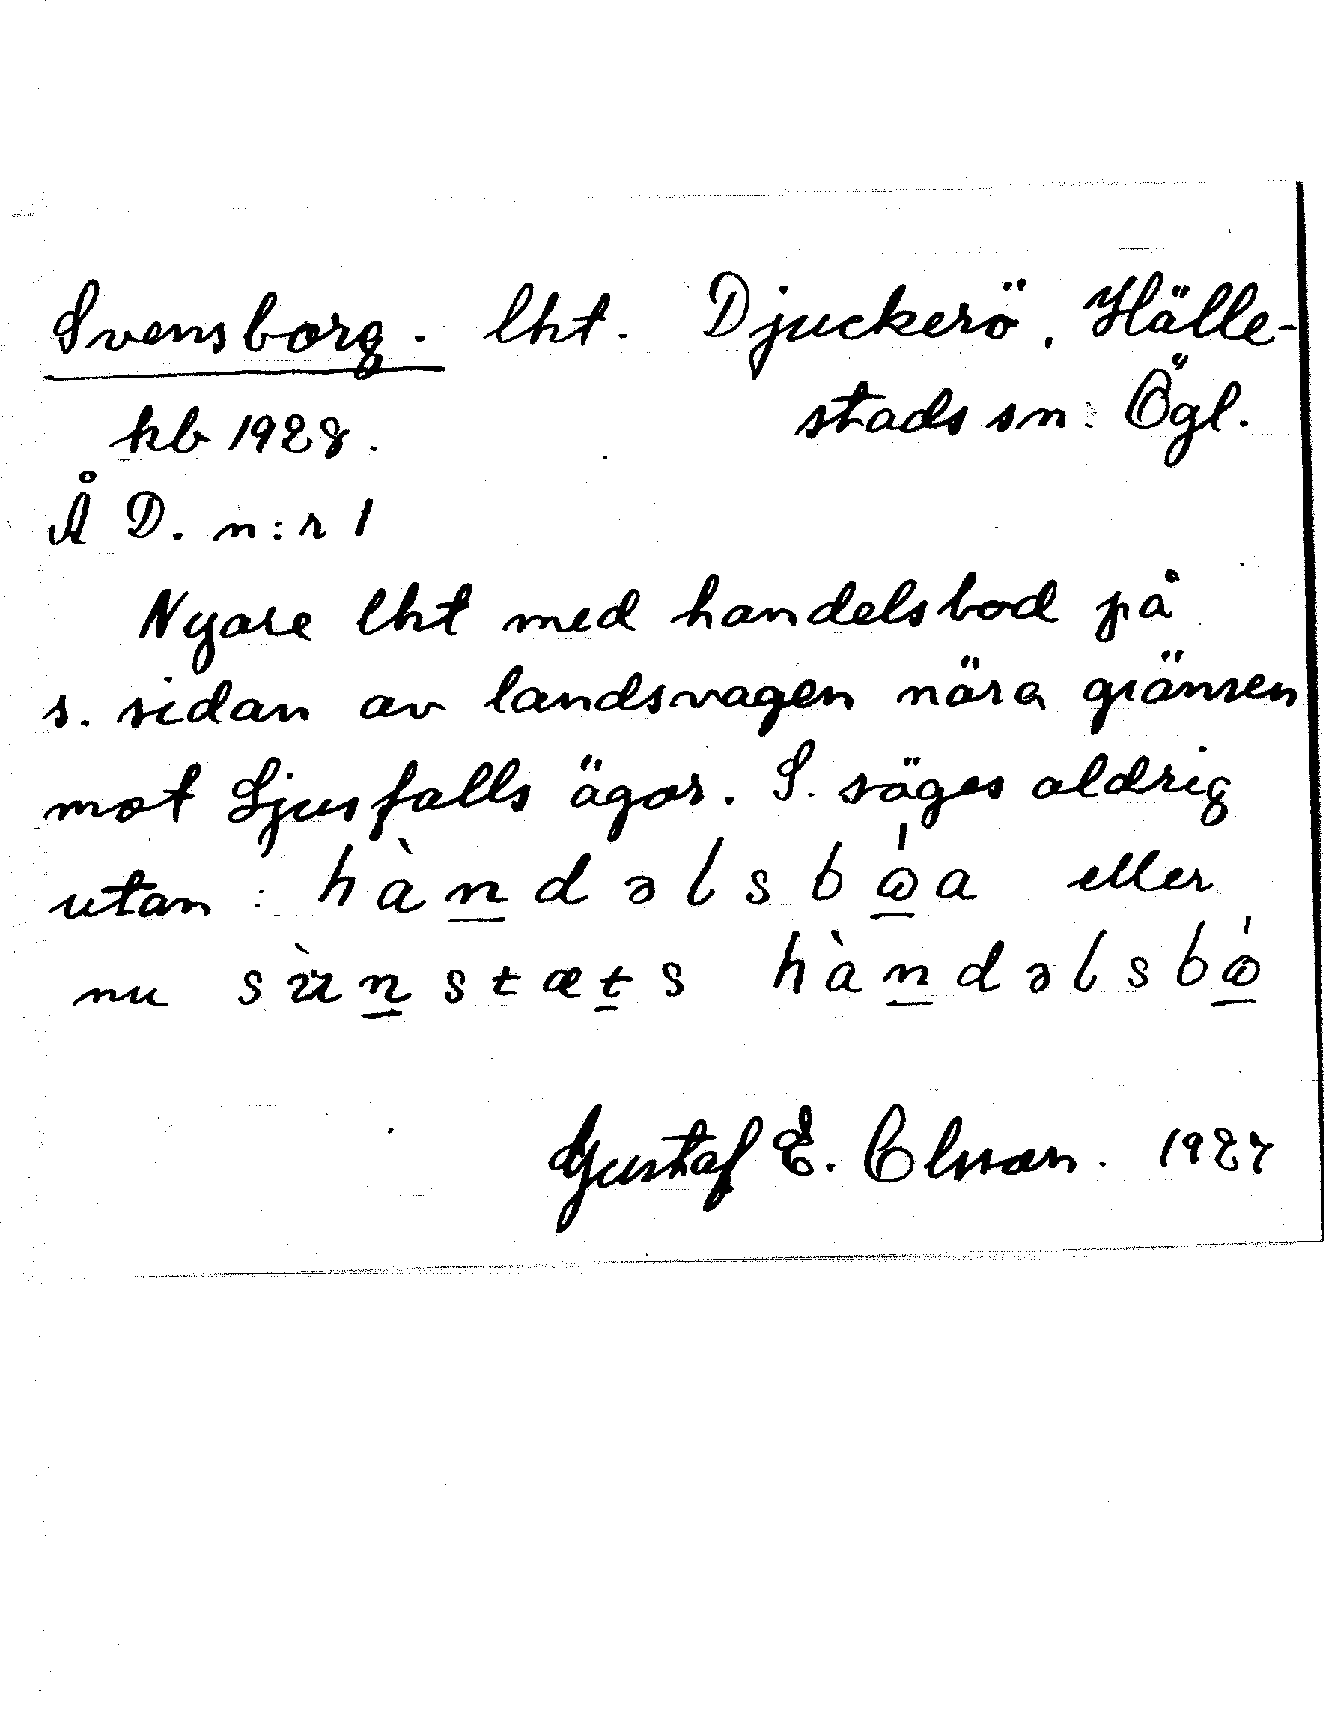 Svensborg. lht. Djuckerö, Hälle-
kb 1928. stads sn: Ögl.
Å D. n:r 1
Nyare lht med handelsbod på
s. sidan av landsvagen nära gränsen
mot Ljusfalls ägor. S. säges aldrig
utan: hàn̲dəlsbώ̲a eller
nu s n̲stæt̲s hàn̲dəlsbώ̲
Gustaf E. Olsson. 1927